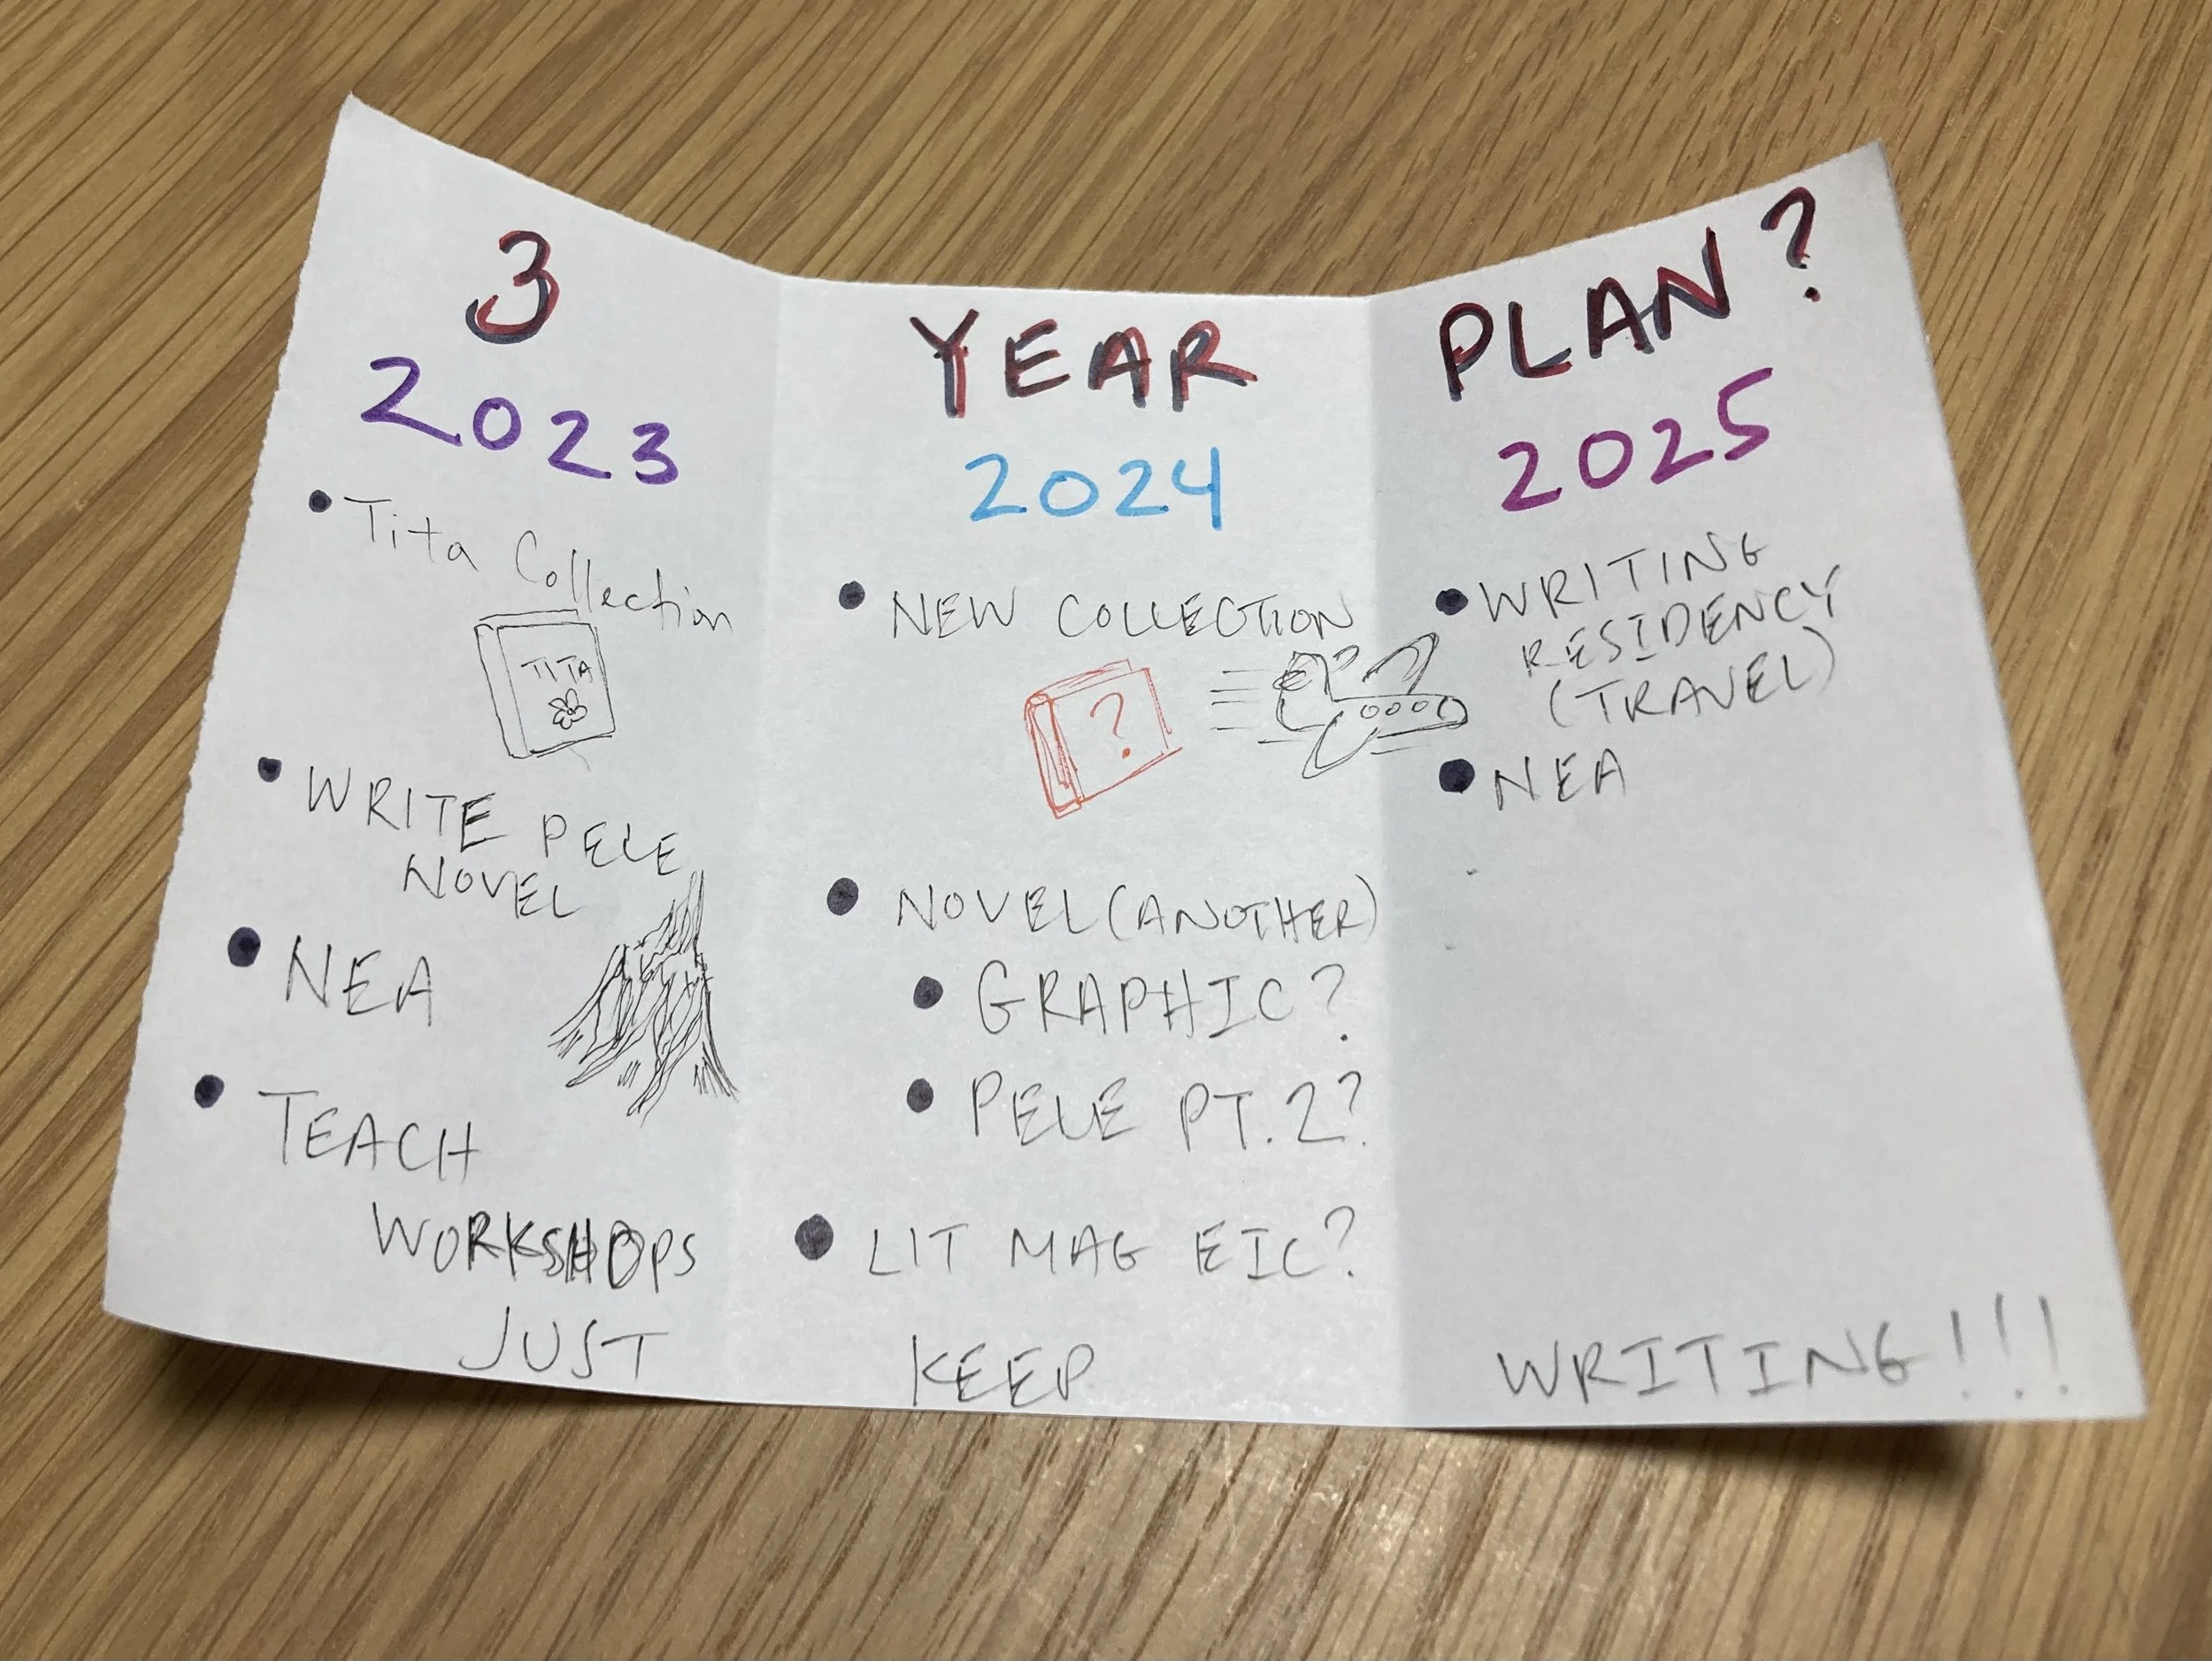 3 YEAR PLAN?
2023
• Tita Collection
TITA
• WRITE PELE
NOVEL
• NEA
• TEACH
WORKSHOPS
2024
• NEW COLLECTION
?
• NOVEL (ANOTHER)
• GRAPHIC?
• PELE PT. 2?
• LIT MAG EIC?
2025
• WRITING
RESIDENCY
(TRAVEL)
• NEA
JUST KEEP WRITING!!!